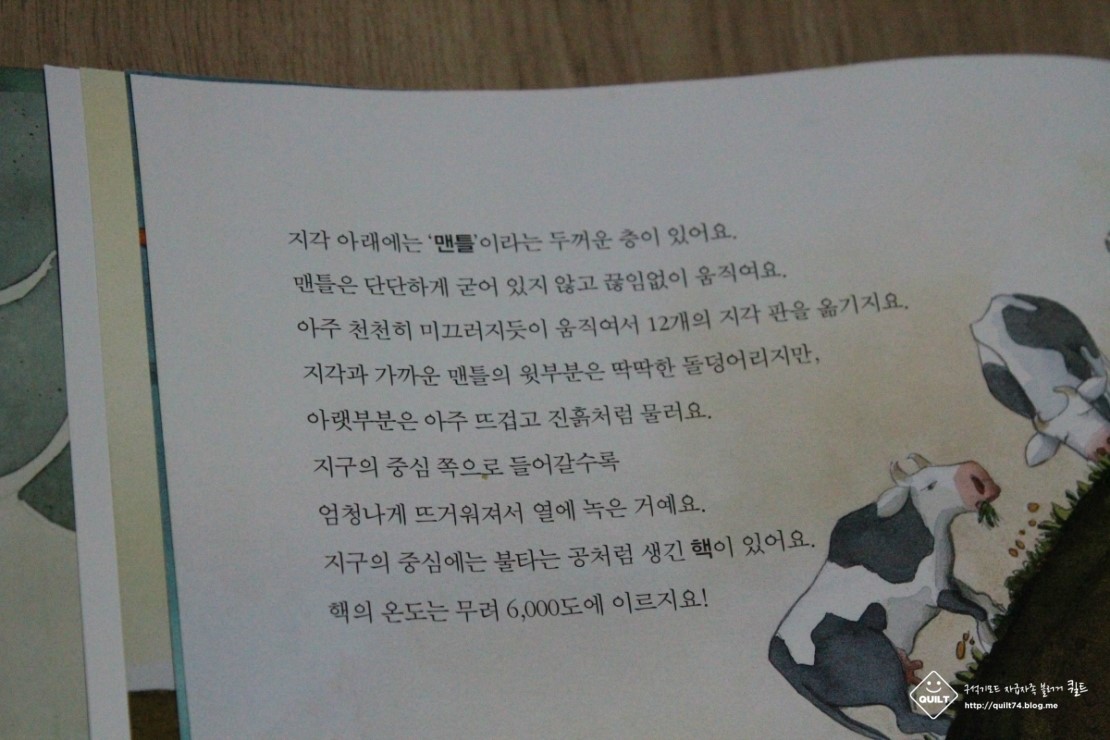 지각 아래에는 ‘맨틀’이라는 두꺼운 층이 있어요.
맨틀은 단단하게 굳어 있지 않고 끊임없이 움직여요.
아주 천천히 미끄러지듯이 움직여서 12개의 지각 판을 옮기지요.
지각과 가까운 맨틀의 윗부분은 딱딱한 돌덩어리지만,
아랫부분은 아주 뜨겁고 진흙처럼 물러요.
지구의 중심 쪽으로 들어갈수록
엄청나게 뜨거워져서 열에 녹은 거예요.
지구의 중심에는 불타는 공처럼 생긴 핵이 있어요.
핵의 온도는 무려 6,000도에 이르지요!
QUILT
구석기모드 자급자족 블러거 퀼트
http://quilt74.blog.me